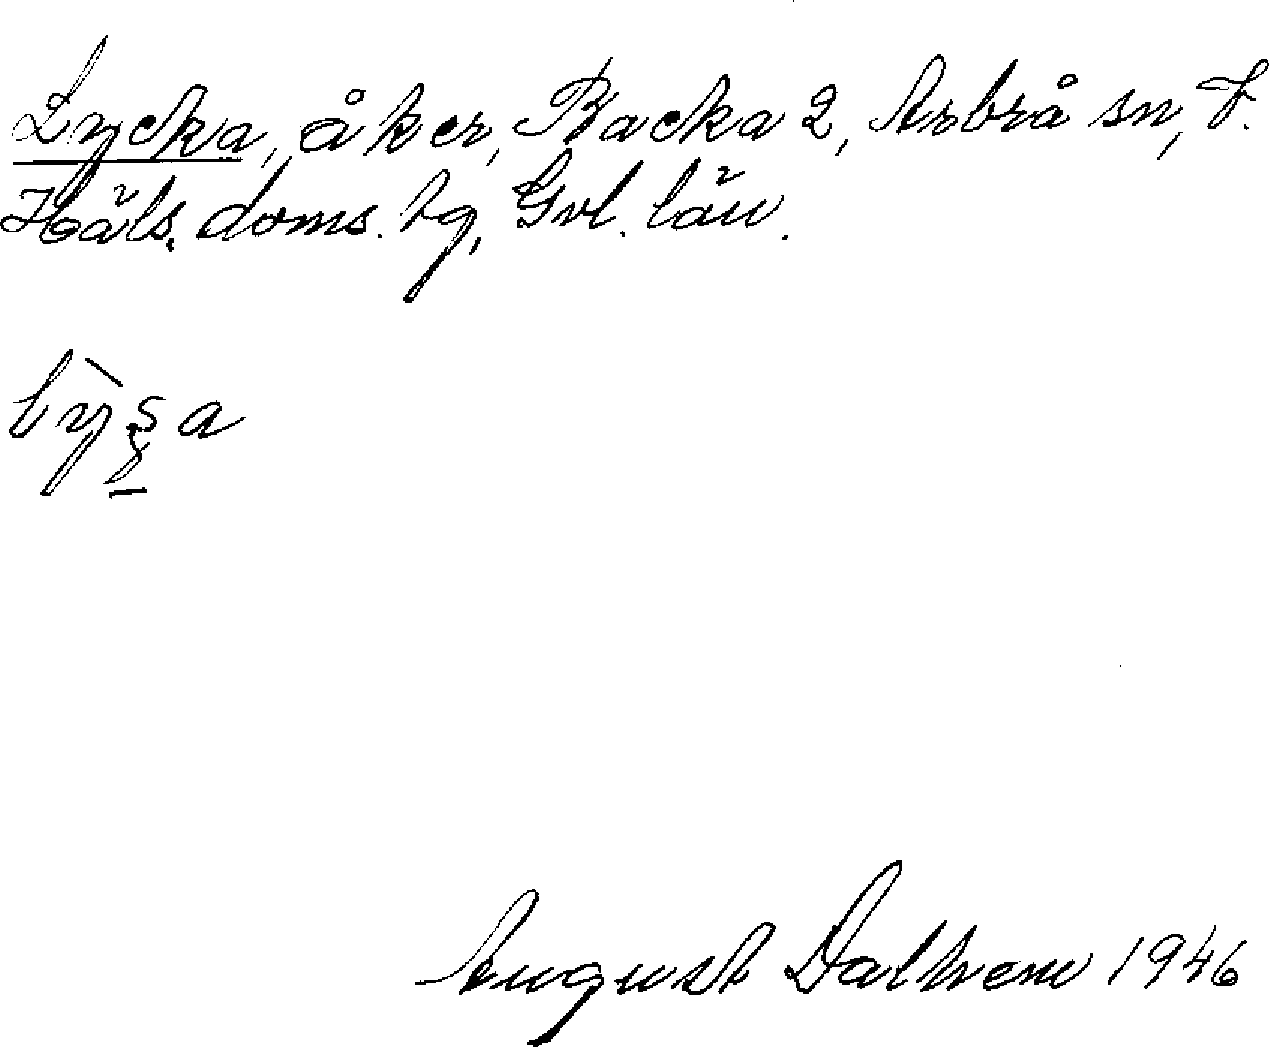 Lycka, åker, Backa 2, Arbrå sn, V.
Häls. doms. tg, Gvl. län.
August Dalhem 1946